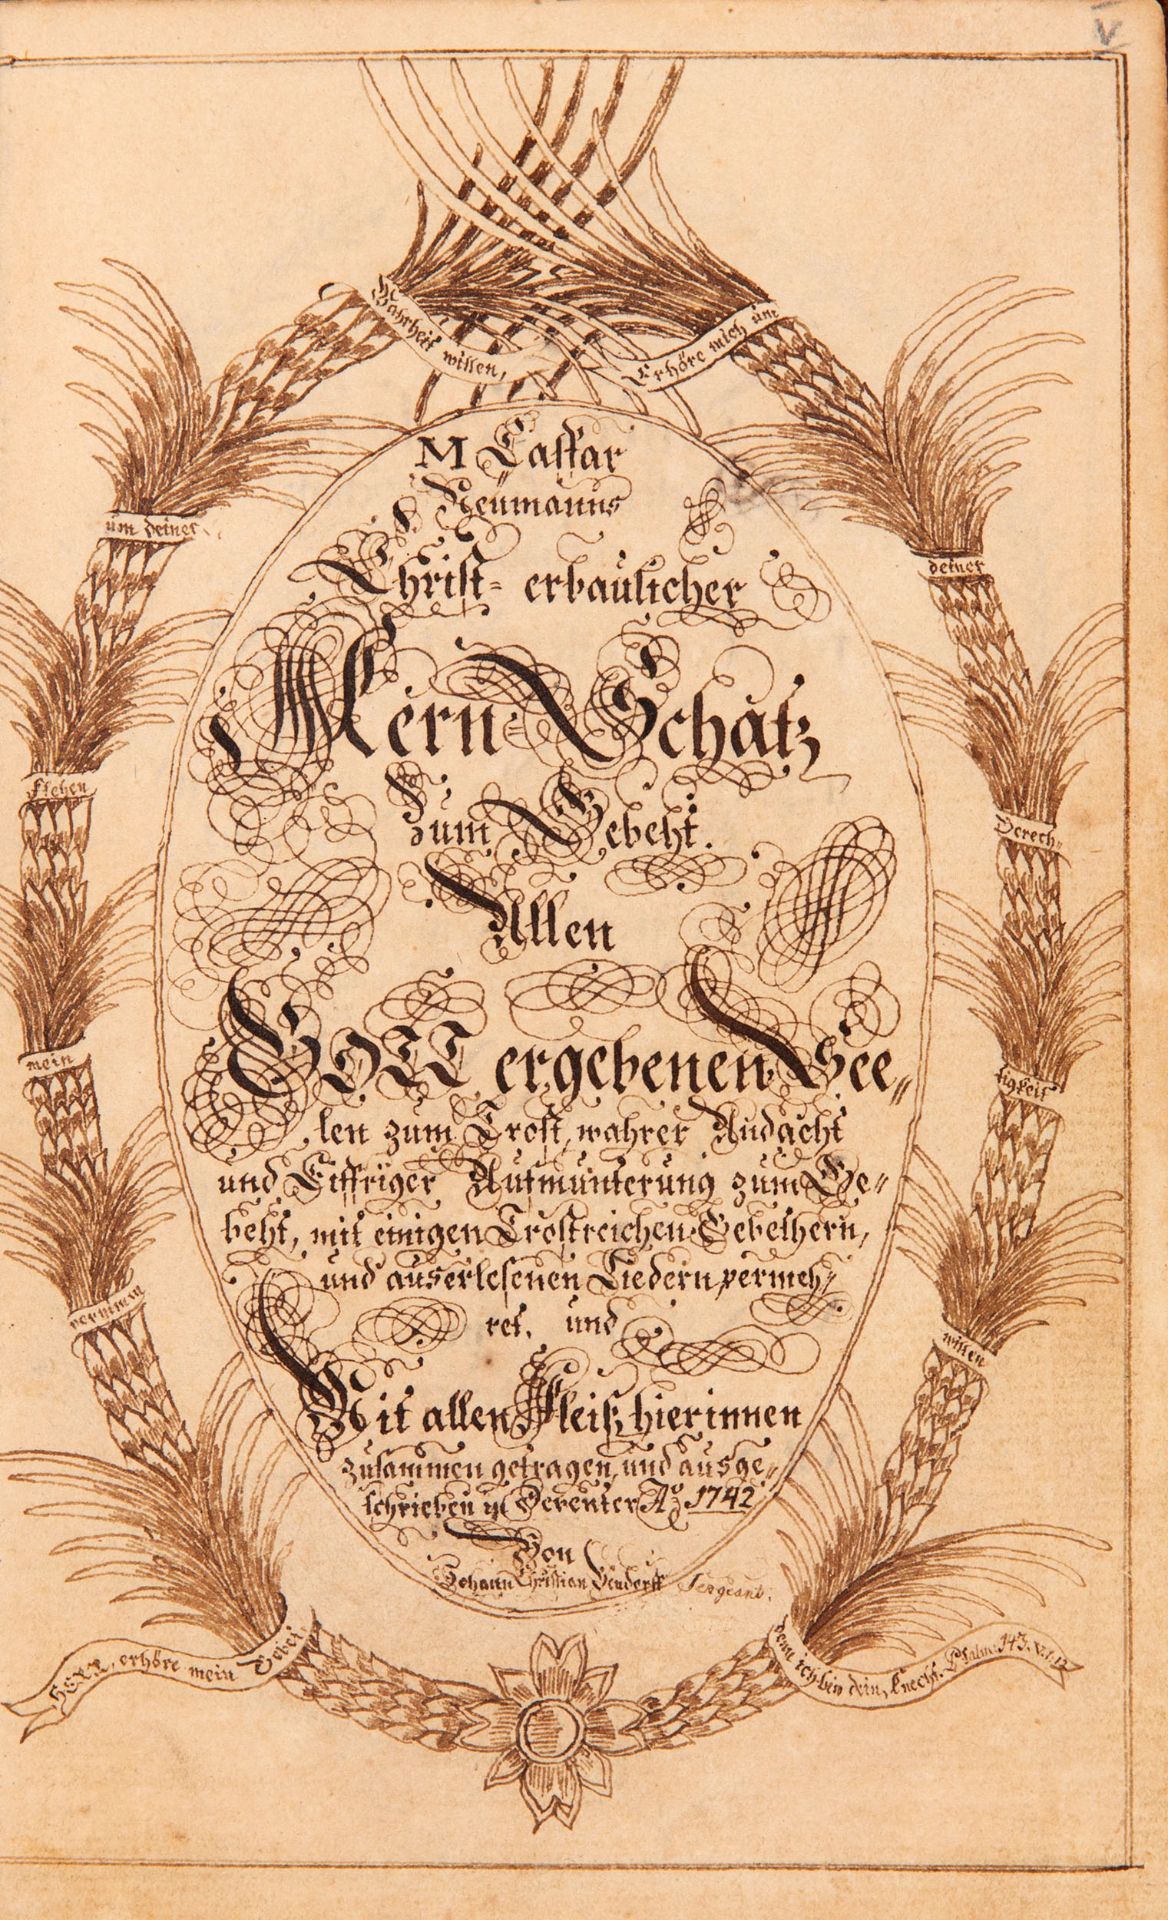 V
M Caspar
Neümanns
Christ- erbaulicher
Kern-Schatz
Zum Gebeht.
Allen
GOTT ergebenen See=
len zum Trost, wahrer Andacht
und Eiffriger Aufmunterung zum Ge=
beht, mit einigen Trostreichen Gebethern,
und auserlesenen Liedern vermeh=
ret. und
Mit allen Fleiß hierinnen
zusammen getragen, und ausge=
schrieben in Deventer Aō 1742
Von
Johann Christian
Sergeant.
HERR, erhöre mein Gebet,
vernimm
mein
flehen
um deiner
Wahrheit willen,
Erhöre mich um
deiner
Gerech=
tigkeit
willen
denn ich bin dein Knecht. Psalm: 143. V. 1. 12